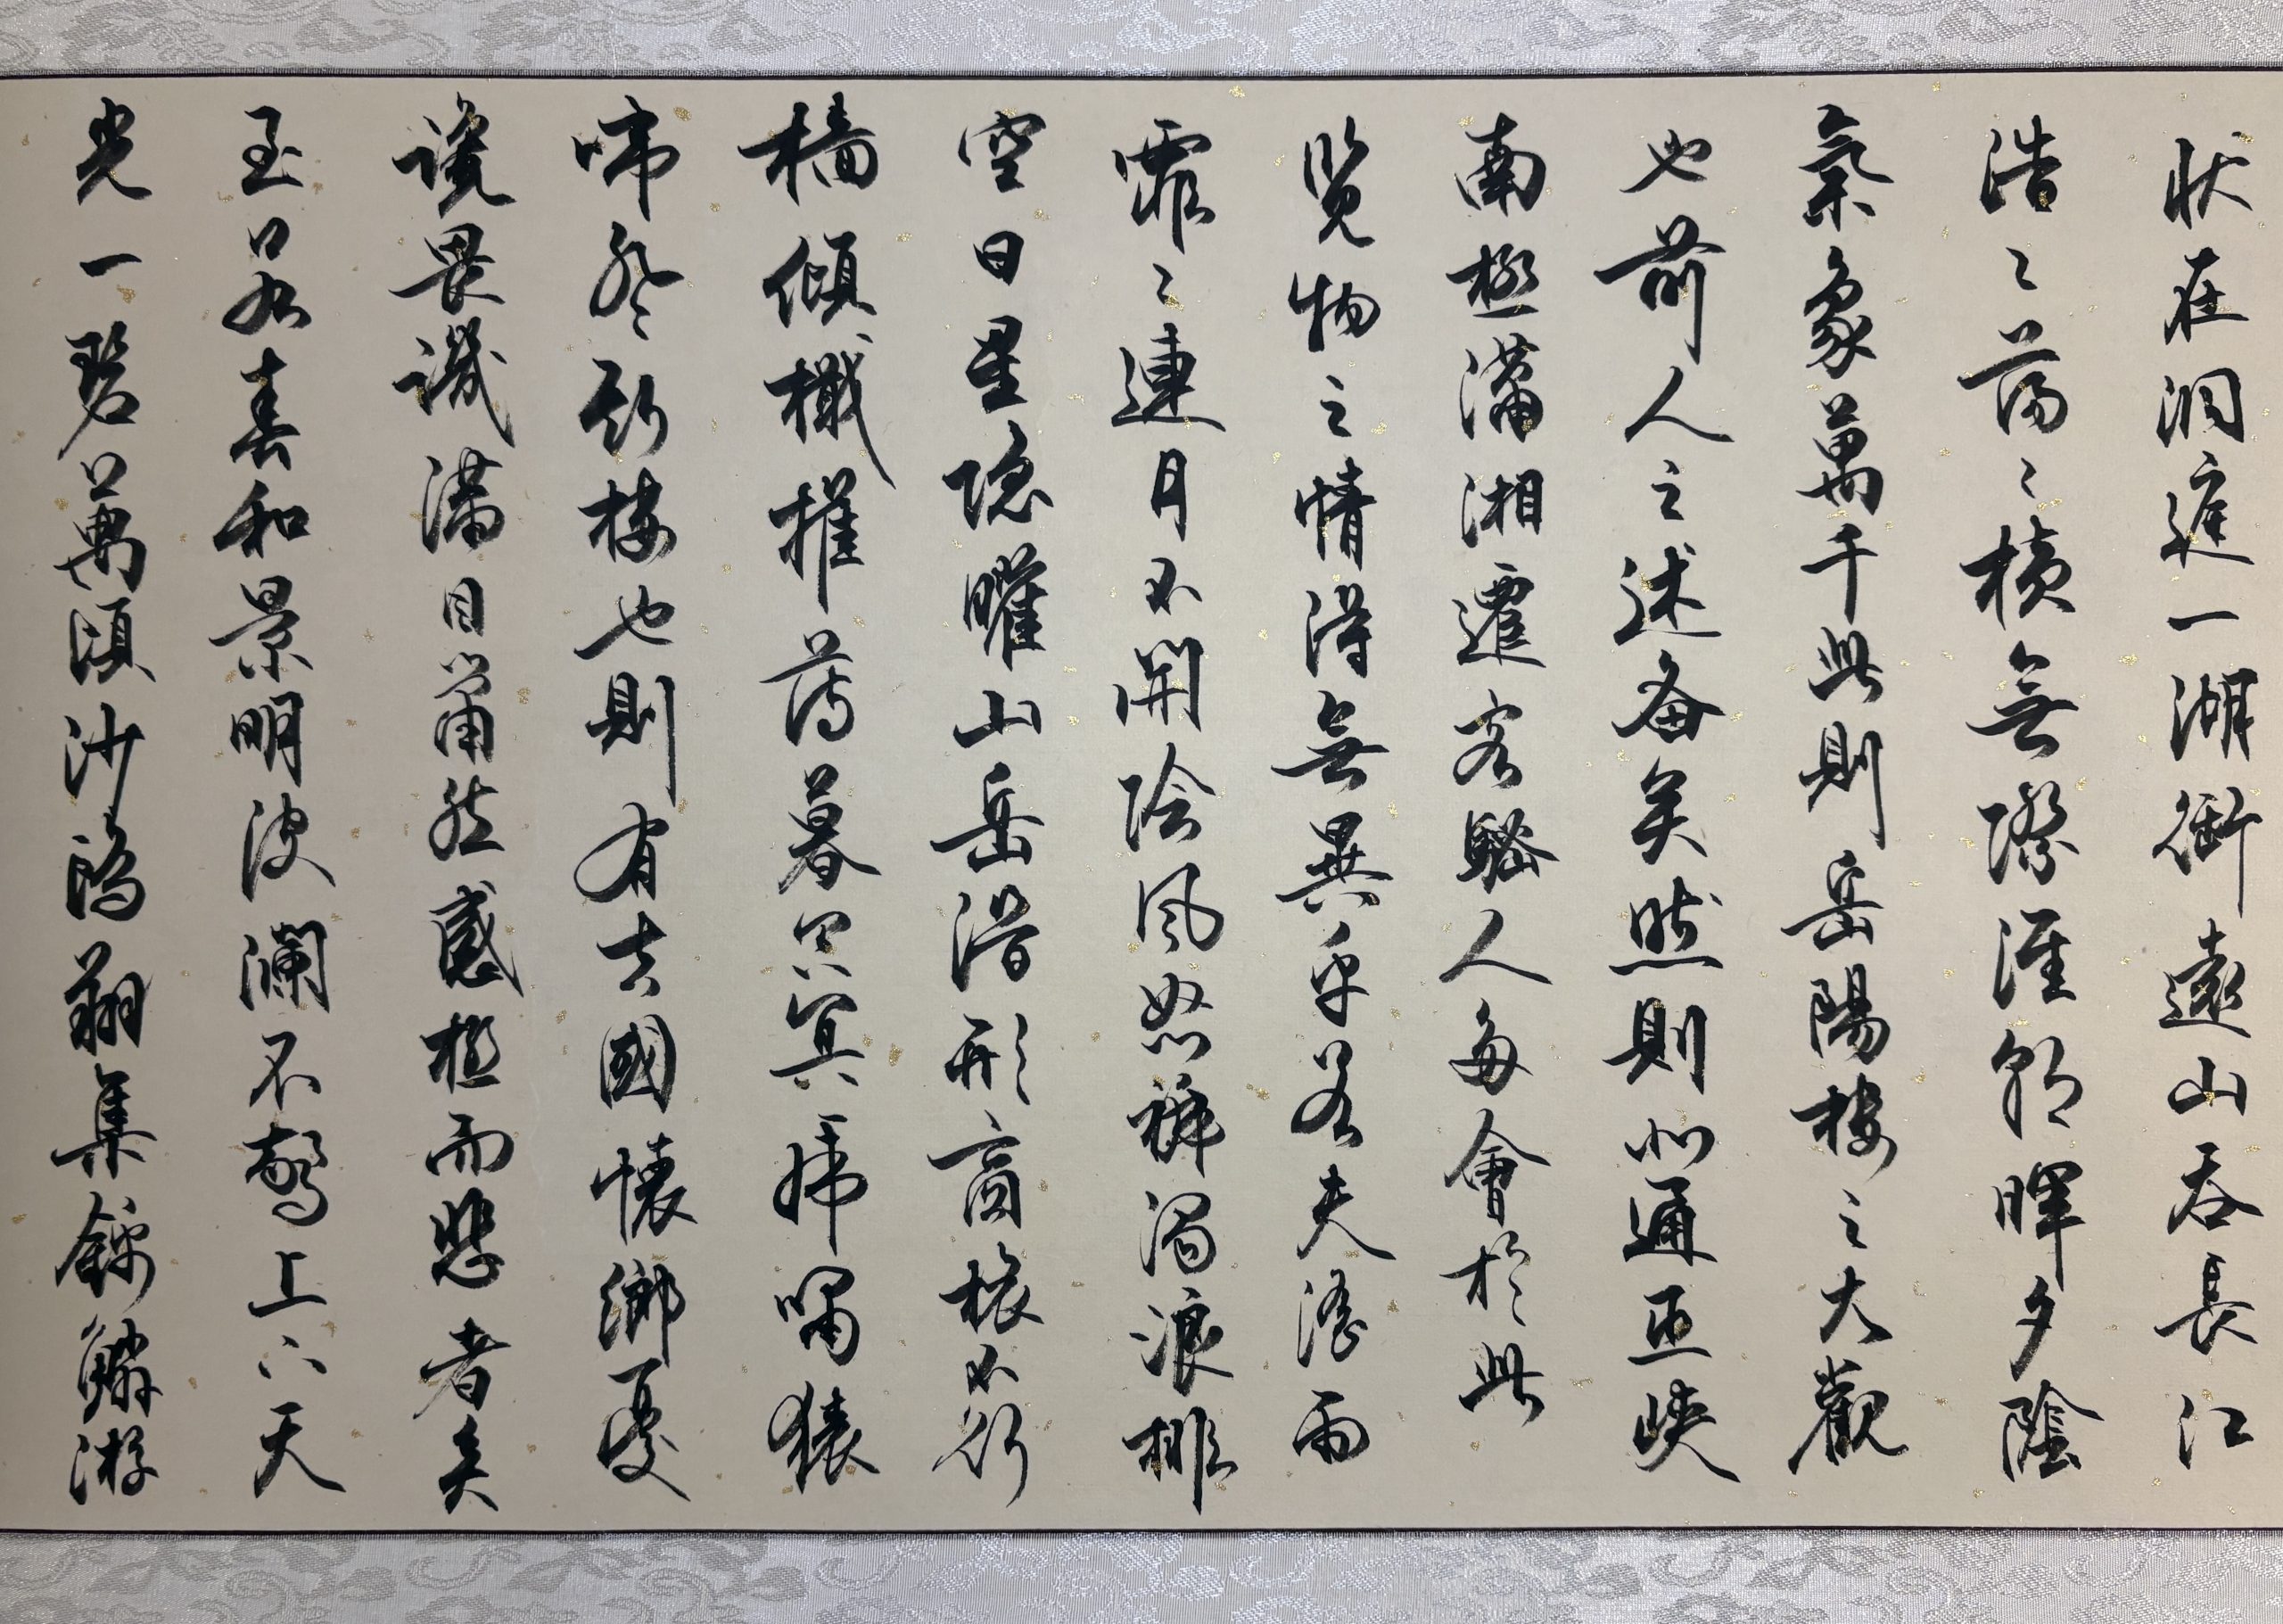 状在洞庭一湖銜遠山吞長江
浩々蕩々橫無際涯朝暉夕陰
氣象萬千此則岳陽樓之大觀
也前人之述备矣然則北通巫峽
南極瀟湘遷客騷人多會於此
覽物之情得無異乎若夫淫雨
霏々連月不開陰風怒號濁浪排
空日星隱曜山岳潛形商旅不行
檣傾檝摧薄暮冥冥虎嘯猿
啼登斯樓也則有去國懷鄉憂
讒畏譏滿目蕭然感極而悲者矣
至若春和景明波瀾不驚上下天
光一碧萬頃沙鷗翔集錦鱗游